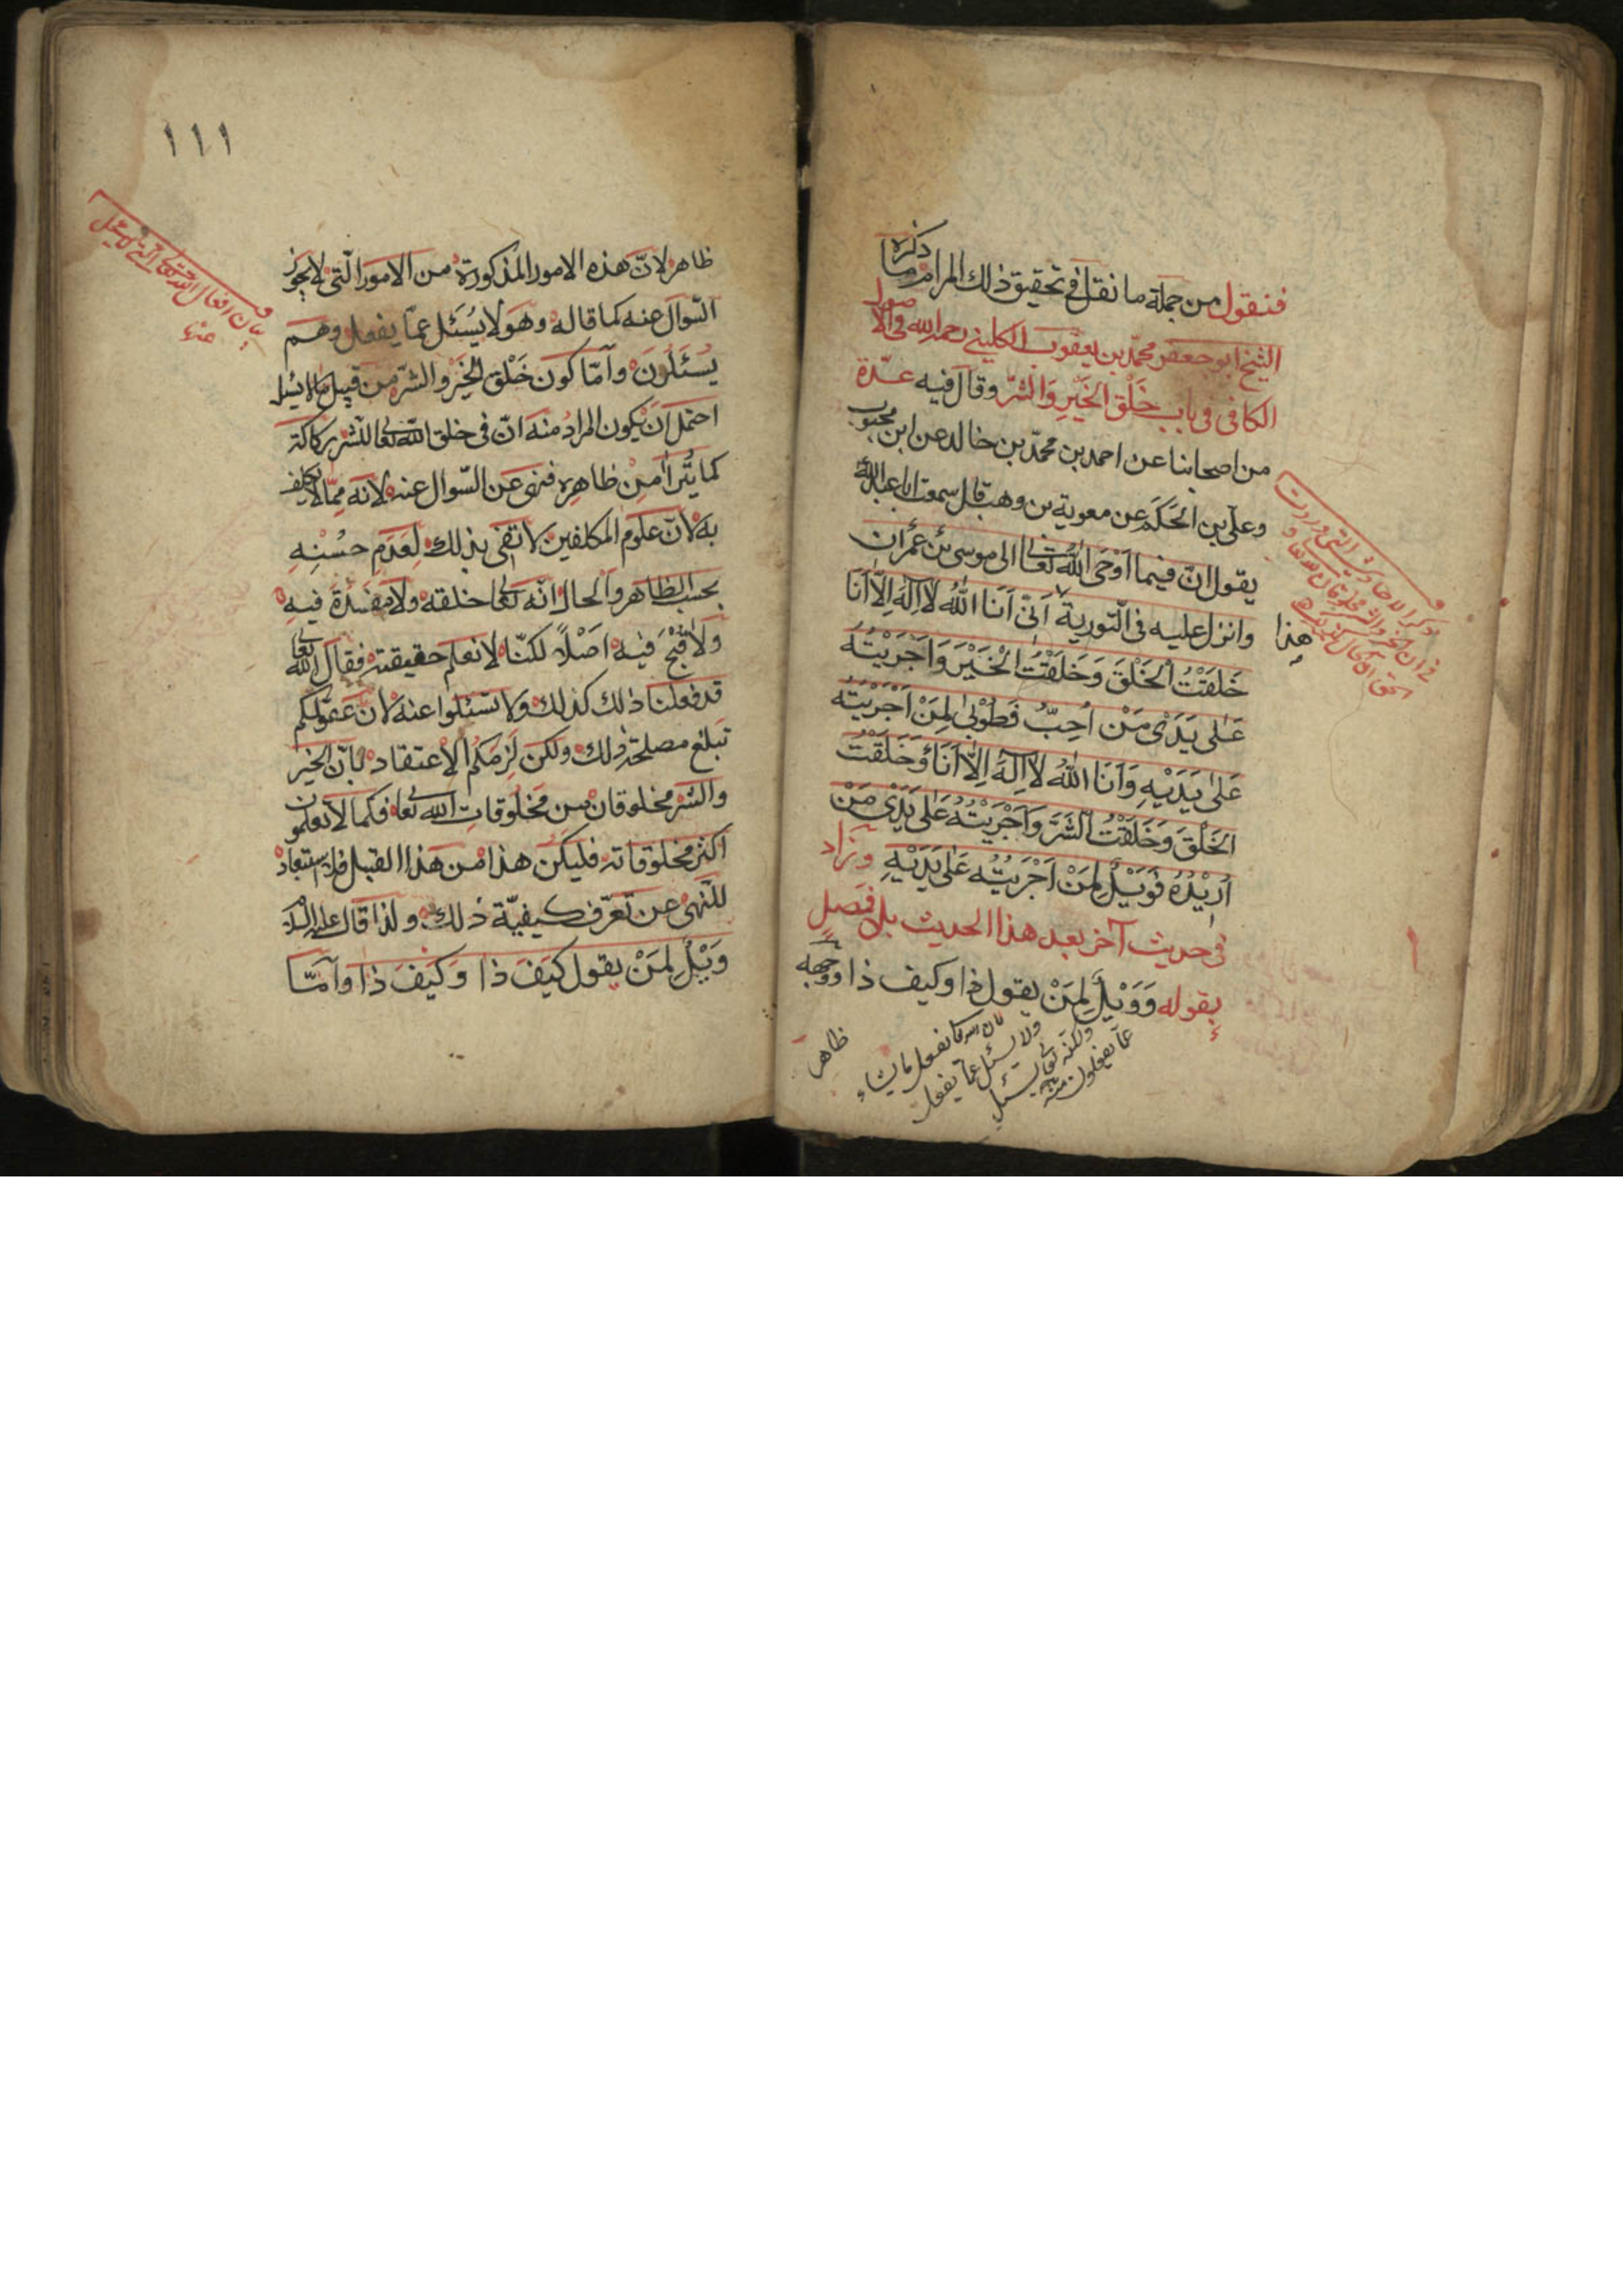 فنقول من جملة ما نقل في تحقيق ذلك المرام ما ذكره
الشيخ ابو جعفر محمّد بن يعقوب الكليني رحمه الله في الاصول
الكافي في باب خَلْق الخَيْرِ وَالشّر وقال فيه عدّة
من اصحابنا عن احمد بن محمّد بن خالد عن ابن محبوب
وعلي بن الحَكَم عن معوية بن وهب قال سمعت ابا عبد الله
يقول انّ فيما اَوْحَى اللهُ تعالى الى موسى بْن عِمْران
وانزل عليه في التّورية اَنّى اَنَا اللهُ لاَ اِلٰهَ اِلاَّ اَنَا
خَلَقْتُ الخَلْقَ وَخَلَقْتُ الْخَيْرَ وَاَجْرَيْتُهُ
عَلٰى يَدَىْ مَنْ اُحِبُّ فَطُوْبٰى لِمَنْ اَجْرَيْتُه
عَلٰى يَدَيْهِ وَاَنَا اللهُ لاَ اِلٰهَ اِلاَّ اَنَا وَخَلَقْتُ
الخَلْقَ وَخَلَقْتُ الشَّرَّ وَاَجْرَيْتُهُ عَلٰى يَدَىْ مَنْ
اُرِيْدُهُ فَوَيْلٌ لِمَنْ اَجْرَيْتُه عَلٰى يَدَيْهِ وزاد
في حديث آخر بعد هذا الحديث بلا فصلٍ
بقوله وَوَيْلٌ لِمَنْ يقول كيف ذا وكيف ذا ووجهه
هذا
ولا يسئل عمّا يفعل
عمّا يفعلون
ظاهر
١١١
ظاهر لانّ هذه الامور المذكورة من الامور الّتى لا يجوز
السّوال عنه كما قاله وهو لا يُسْئَل عمّا يفعل وهم
يُسْئَلُوْنَ وامّا كون خَلْق الخَيْر والشرّ من قبيل ما لا يسئل
احتمل ان يكون المرادُ منه انّ في خلق الله تعالى للشّر ركاكة
كما يُتراٰ من ظاهره فنهى عن السّوال عنه لانه ممّا لا يكلف
به لانّ علوم المكلفين لا تقى بذلك لِعَدَمِ حُسْنِهِ
بحسب الظاهر والحال انّه تعالى خلقه ولا مَفْسَدَةَ فيه
ولا قُبْحَ فيه اَصْلاً لكنّا لا نعلم حقيقته فقال الله تعالى
قد فعلنا ذلك كذلك ولا تسئلوا عنه لانّ عقولكم
تبلغ مصلحة ذلك ولكن لَزِمَكُم الاعتقاد بانّ الخير
والشّر مخلوقان من مخلوقات الله تعالى فكما لا تعلمون
اكثر مخلوقاته فليكن هذا من هذا القبيل فلا استبعاد
للنّهى عن تعرّف كيفيّة ذلك ولذا قال عليه السلام
وَيْلٌ لِمَنْ يقول كَيْفَ ذا وَكَيْفَ ذا وامّا